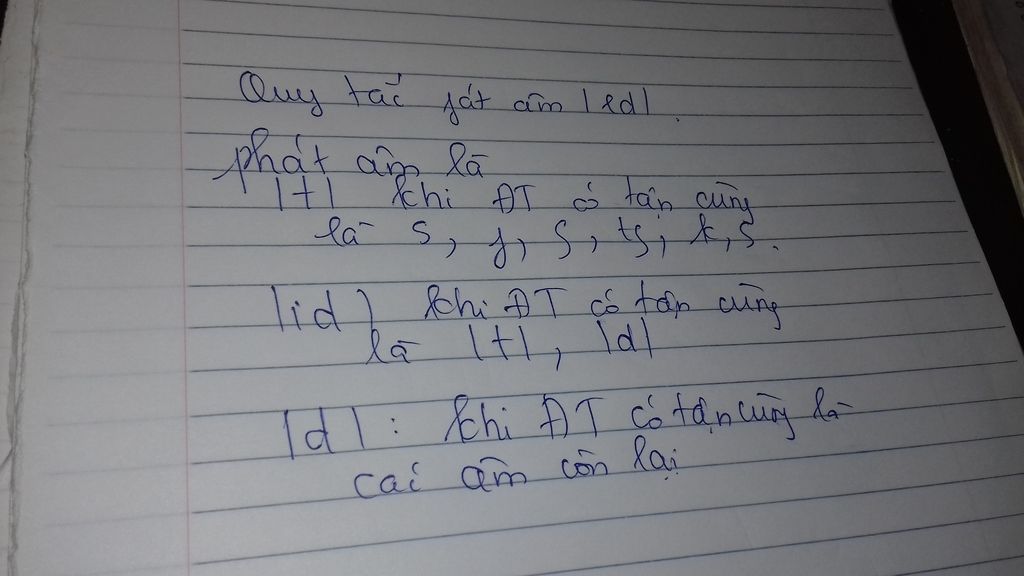 Quy tắc fát âm |ed|.
phát âm là
|t| khi ĐT có tận cùng
là s, f, ʃ, tʃ, k, s.
|id| khi ĐT có tận cùng
là |t|, |d|
|d| : khi ĐT có tận cùng là
caí âm còn lại